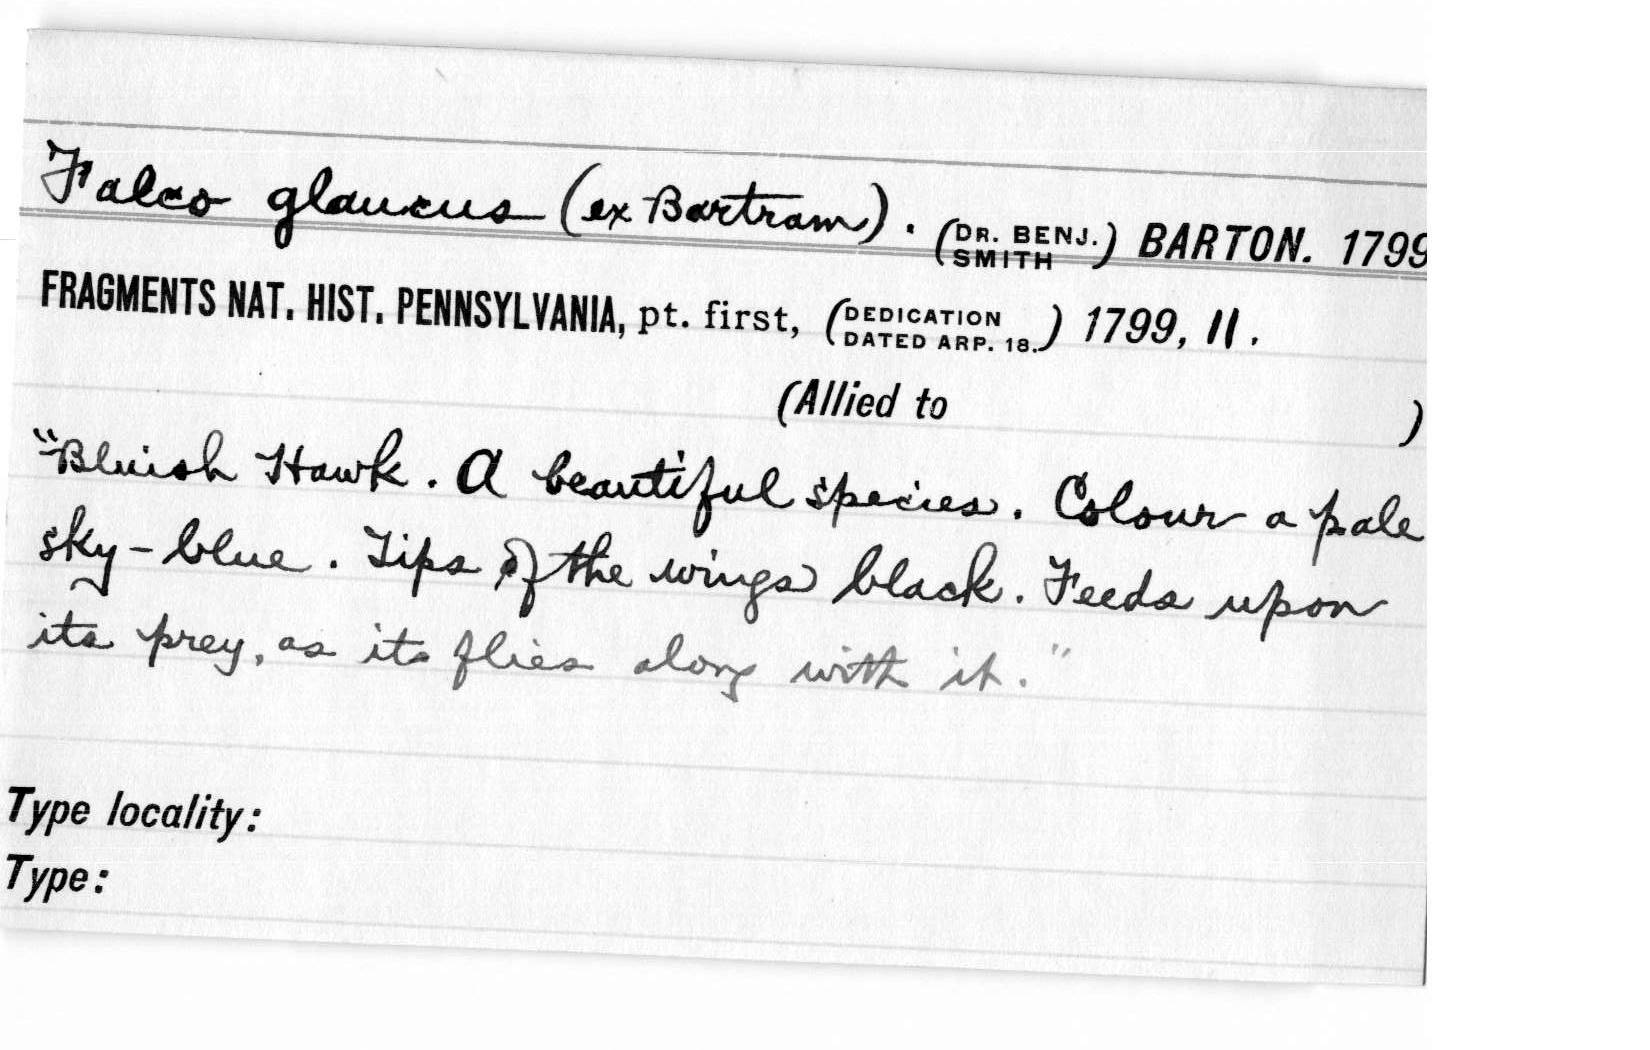 Falco glaucus (ex Bartram). (DR. BENJ. SMITH) BARTON. 1799
FRAGMENTS NAT. HIST. PENNSYLVANIA, pt. first, (DEDICATION DATED ARP. 18.) 1799, 11.
(Allied to )
"Bluish Hawk. A beautiful species. Colour a pale
sky-blue. Tips of the wings black. Feeds upon
its prey, as it flies along with it."
Type locality:
Type: